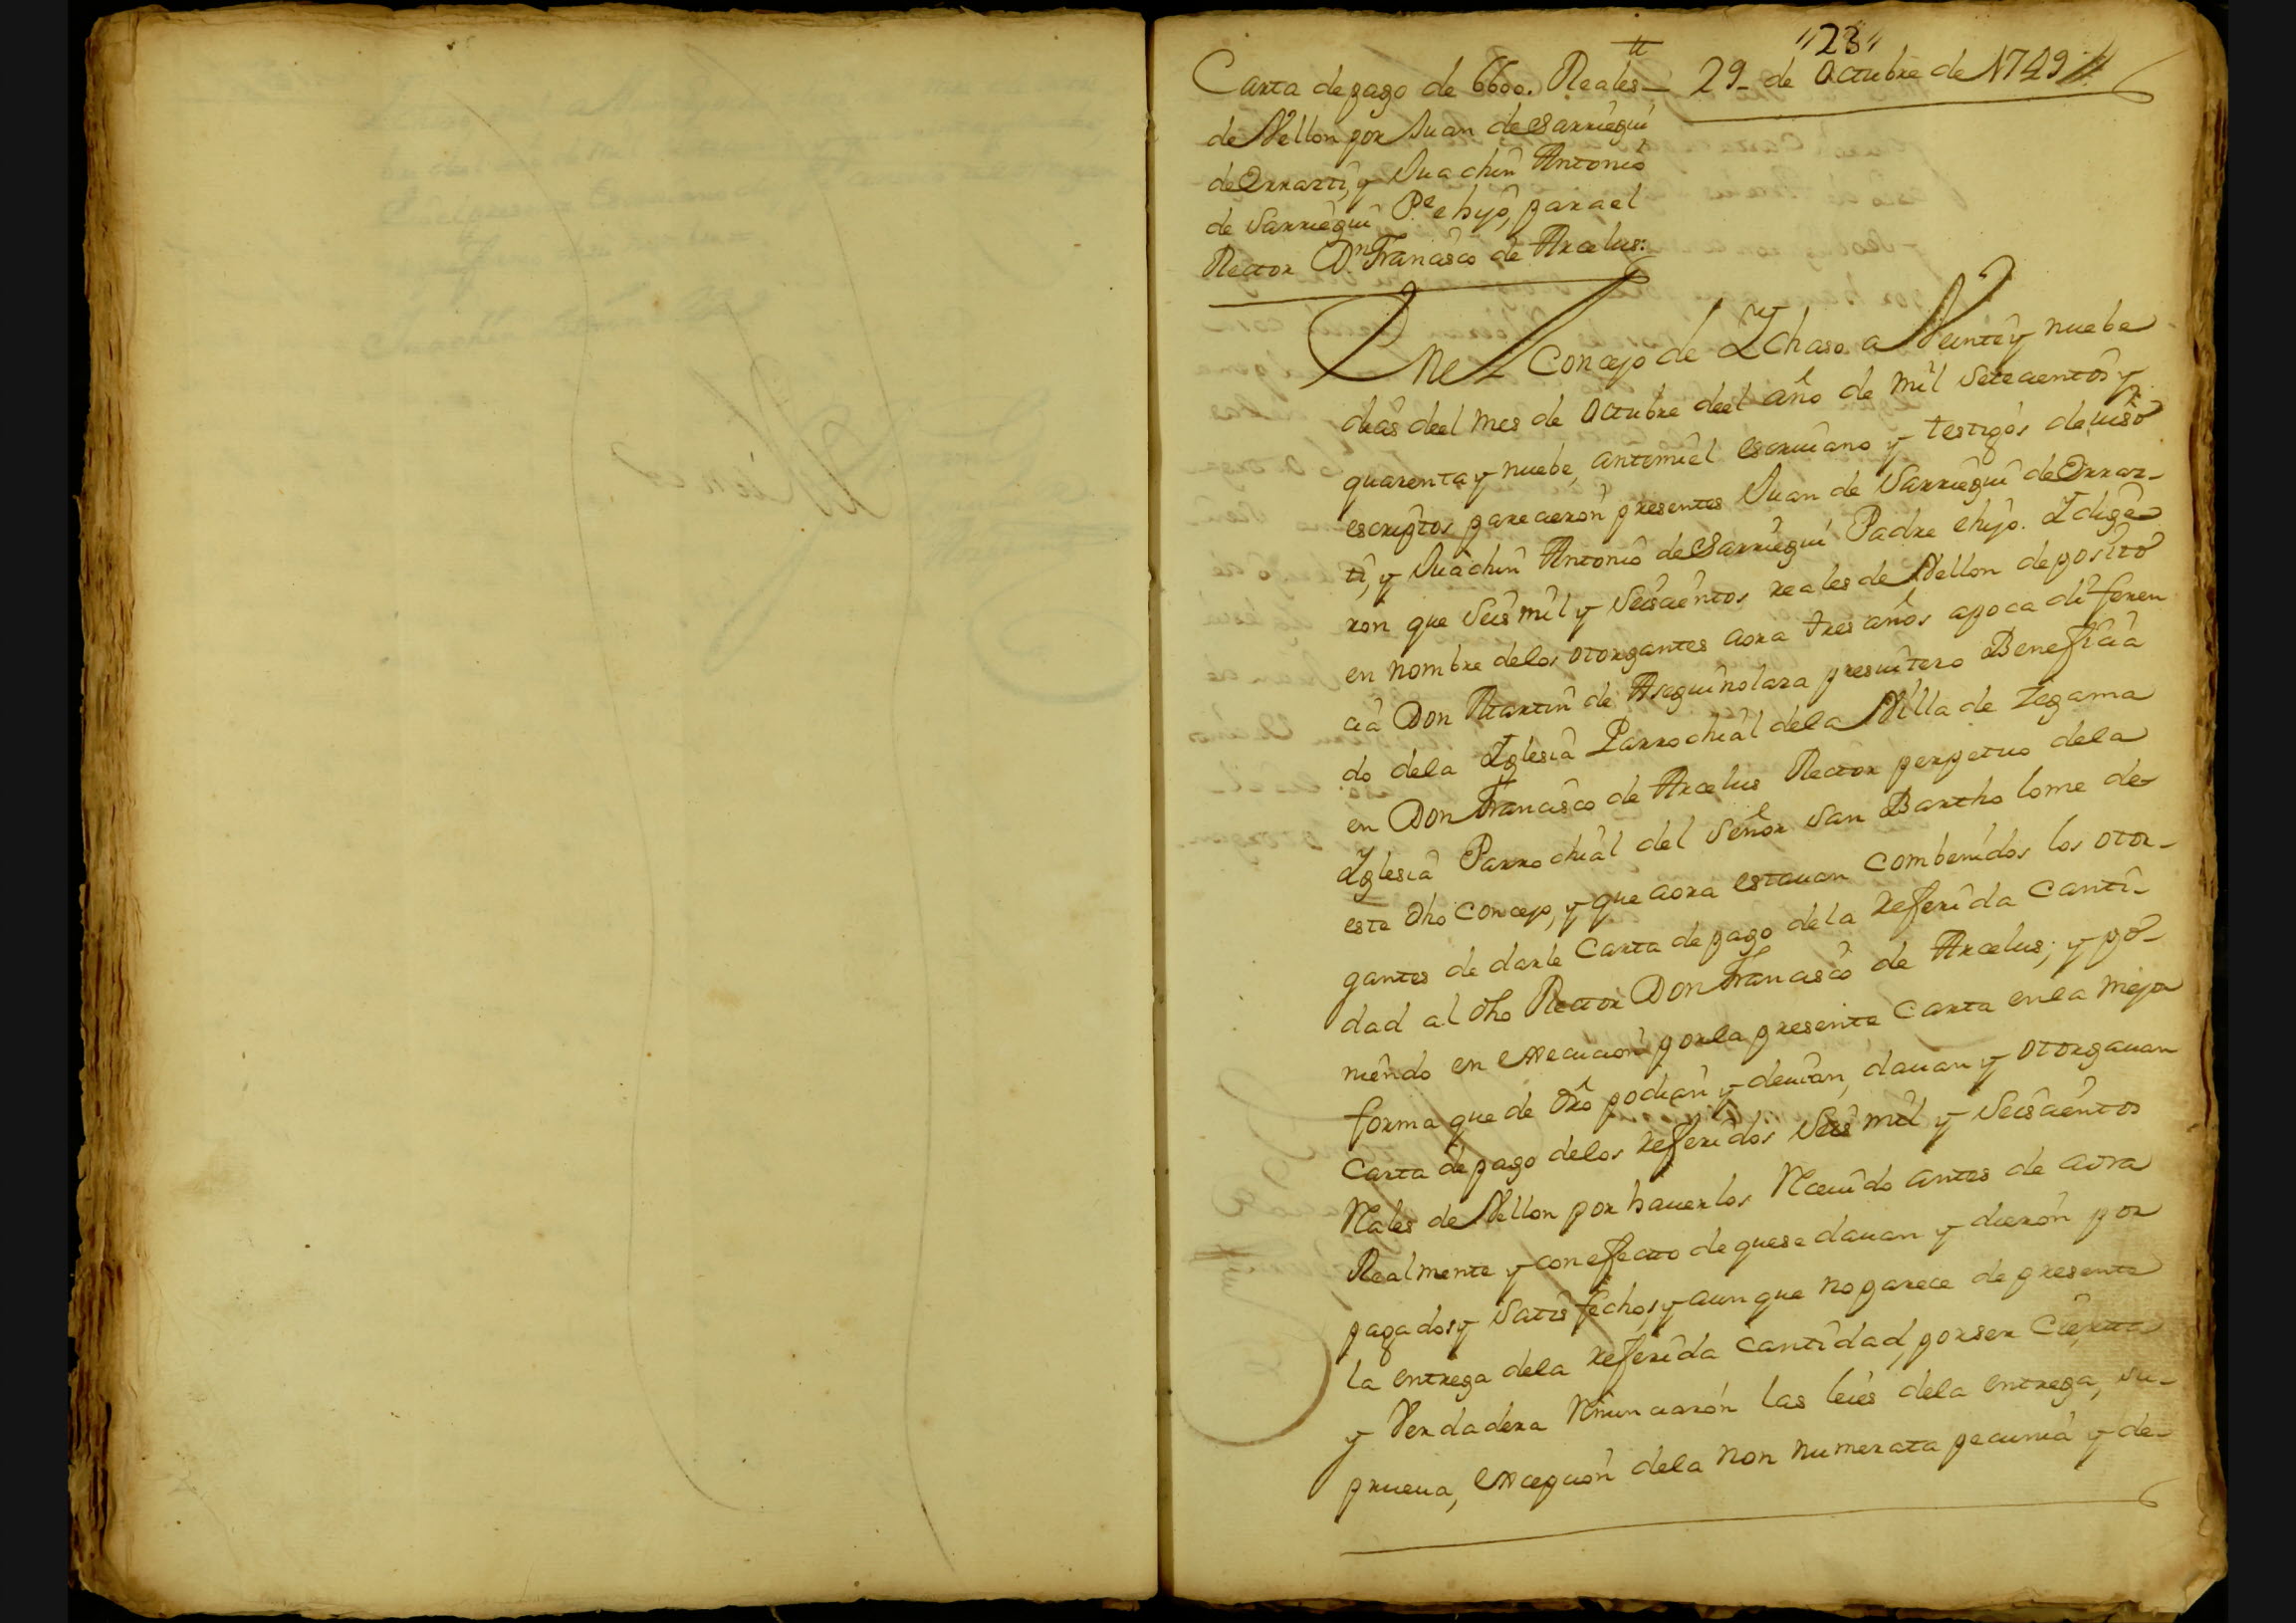 "23"
Carta de pago de 6600. Reales 29 de Octubre de 1749
de Vellon por Juan de Sarriegui
de Orrazti, y Juachin Antonio
de Sarriegui Pe. e hijo, para el
Rector Dn. Francisco de Arcelus:
En el Concejo de Ichaso a Veinte y nuebe
dias deel mes de Octubre deel año de mil Setecientos y
quarenta y nuebe, antemi el escriuano y testigos de iuso
escriptos parecieron presentes Juan de Sarriegui de Orraz-
ti, y Juachin Antonio de Sarriegui Padre e hijo. I dige-
ron que Seis mil y Seiscientos reales de Vellon deposito
en nombre de los otorgantes aora tres años apoca diferen
cia Don Martin de Aseguinolaza presuitero Beneficia
do dela Iglesia Parrochial dela Villa de Zegama
en Don Francisco de Arcelus Rector perpetuo dela
Iglesia Parrochial del Señor San Bartholome de
este dho Concejo, y que aora estauan combenidos los otor-
gantes de darle Carta de pago dela referida Canti-
dad al dho Rector Don Francisco de Arcelus; y po-
niendo en execucion por la presente Carta en la mejor
forma que de dro podian y deuian, dauan y otorgauan
Carta de pago delos referidos Seis mil y Seiscientos
Rales de Vellon por hauerlos Receuido antes de aora
Realmente y con efecto de que se dauan y dieron por
pagados y Satisfechos, y aunque no parece de presente
la entrega dela referida Cantidad, por ser Cierta
y Verdadera Renunciaron las leies dela entrega, su-
prueua, excepcion dela non numerata pecunia y de-